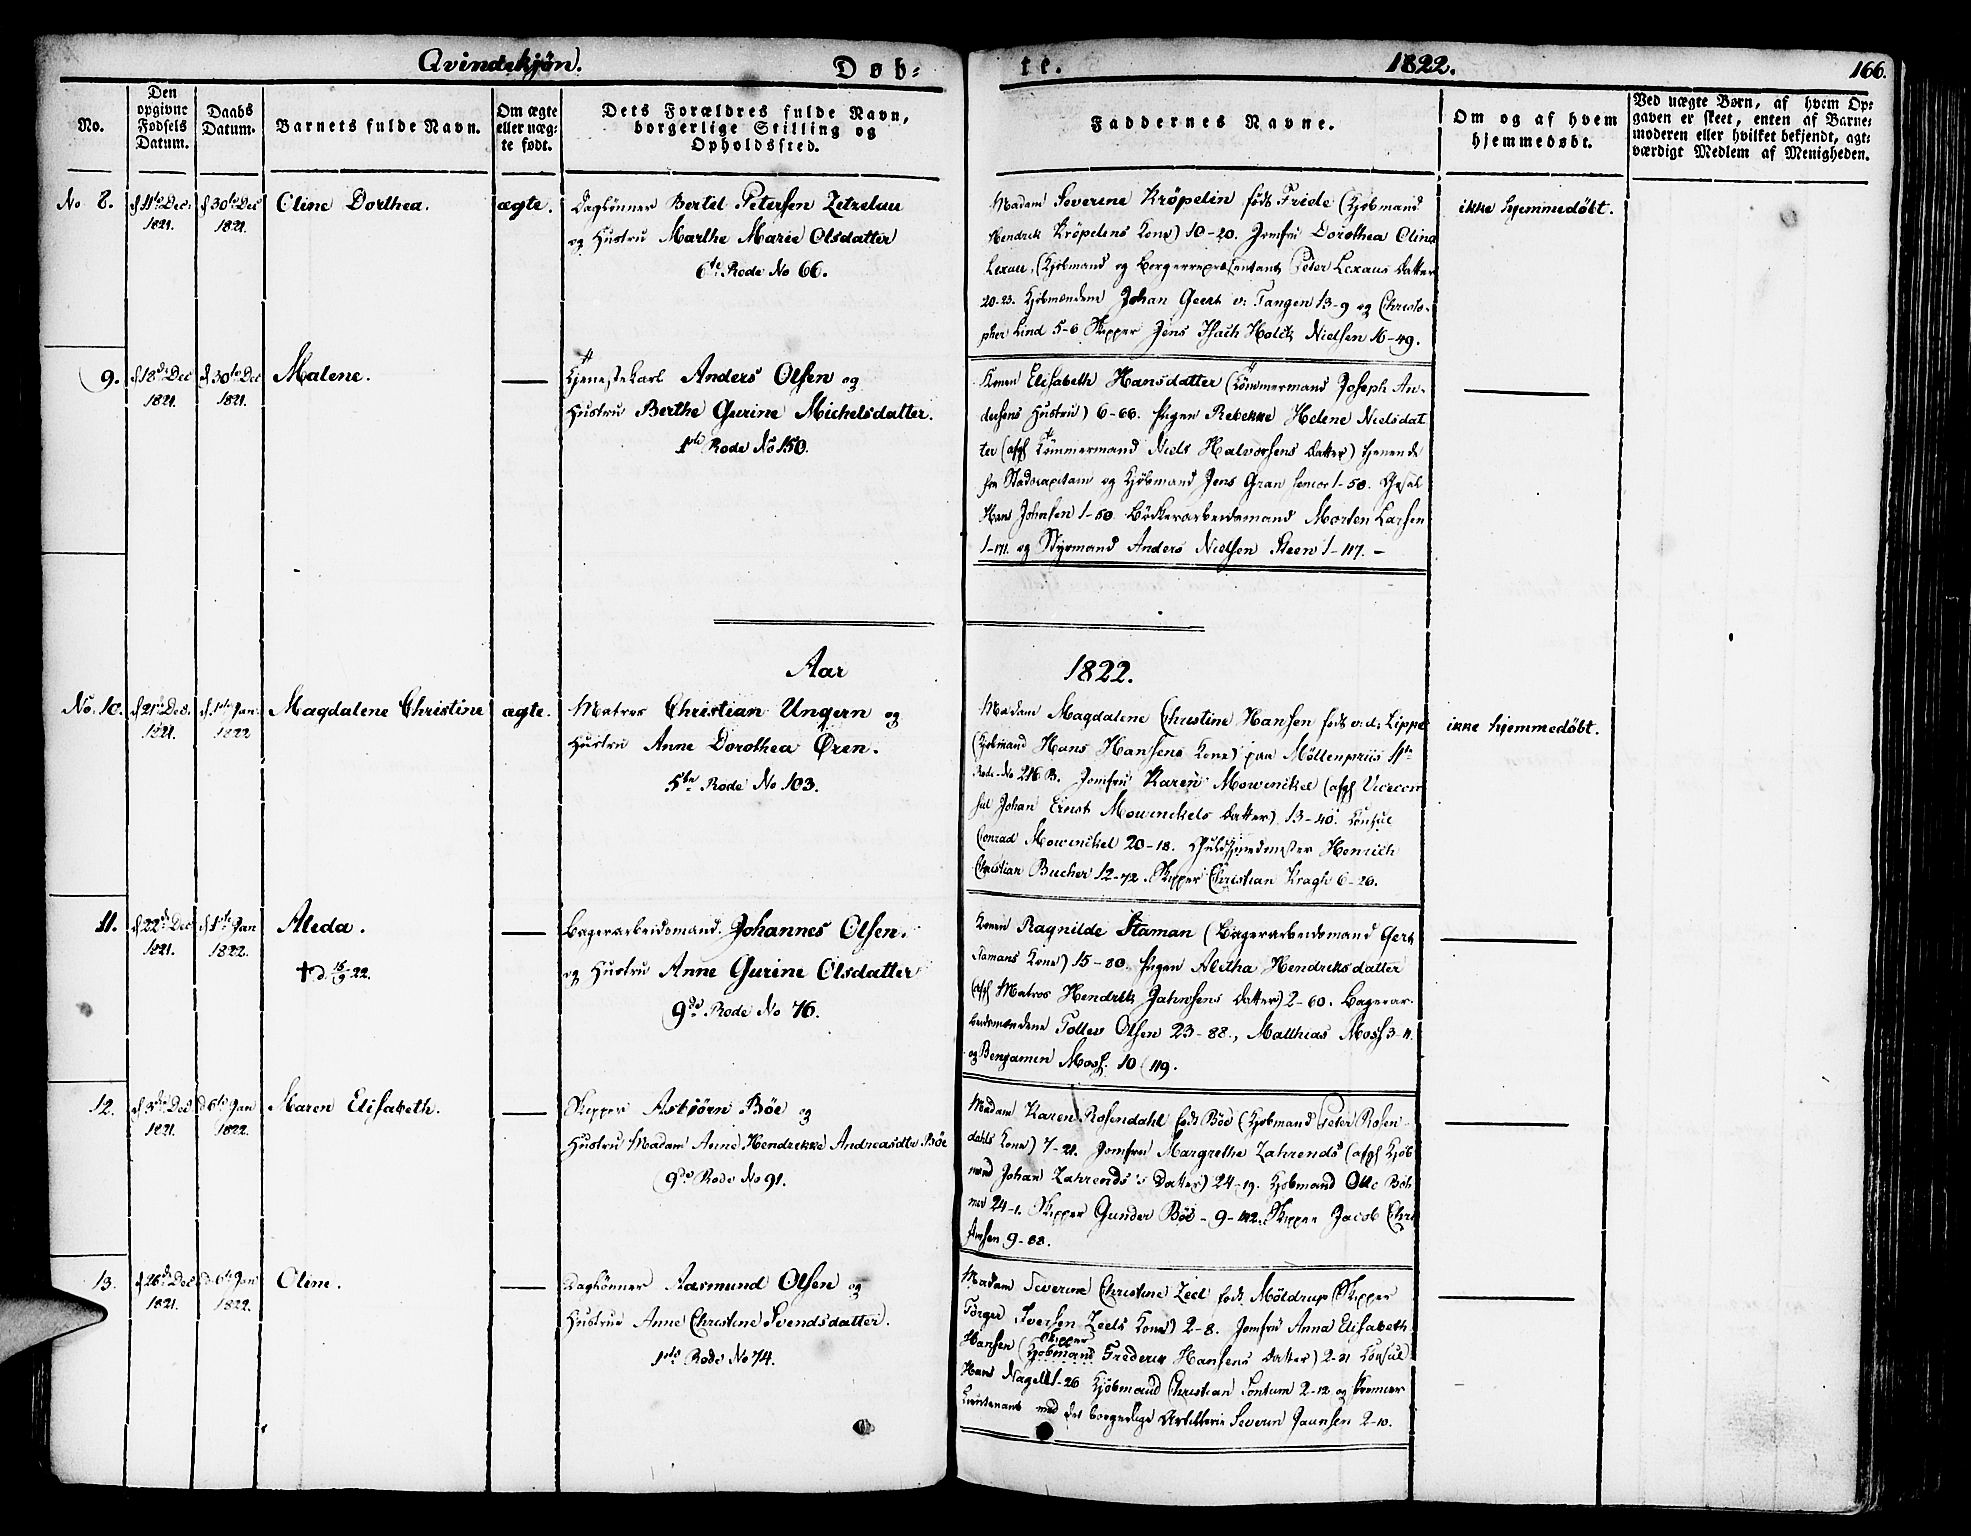 Qvindekjøn.
Døb=
te.
1822.
166.
No.
Den opgivne Fødsels Datum.
Daabs Datum.
Barnets fulde Navn.
Om ægte eller uægte født.
Dets Forældres fulde Navn, borgerlige Stilling og Opholdssted.
Faddernes Navne.
Om og af hvem hjemmedøbt.
Ved uægte Børn, af hvem Opgaven er skeet, enten af Barnemoderen eller hvilket bekjendt, agtværdigt Medlem af Menigheden.
No 8.
d 11te Dec.
1821.
d 30te Dec
1821.
Oline Dorthea.
ægte.
Daglønner Bertel Petersen Zetzelau
og Hustru Marthe Marie Olsdatter
6te Rode No 66.
Madam Severine Kröpelin født Friele (Kjøbmand
Hendrik Kröpelens Kone) 10-20. Jomfru Dorothea Olina
Lexau, (Kjøbmand og Borgerrepræsentant Peter Lexaus Datter
20-23. Kjøbmændene Johan Geert v: Tangen 13-9 og Christo-
pher Lind 5-6 Skipper Jens Holck Nielsen 16-49.
ikke hjemmedøbt.
9.
d 18de Dec
1821.
d 30te Dec
1821.
Malene.
Tjenestekarl Anders Olsen og
Hustru Berthe Gurine Michelsdatter.
1ste Rode No 150.
Konen Elisabeth Hansdatter (Tømmermand Joseph An-
dersens Hustru) 6-66. Pigen Rebekke Helene Nielsdat
ter (afgl Tømmermand Niels Halvorsens Datter) tjenende
for Stadscapitain og Kjøbmand Jens Gran senior 1-50.
Hans Johnsen 1-50. Bødkerarbeidsmand Morten Larsen
1-171. og Styrmand Anders Nielsen Steen 1-117. -
Aar
1822.
No. 10.
d 21de Dec.
1821.
d. 1ste Jan
1822
Magdalene Christine
ægte.
Matros Christian Ungern og
Hustru Anne Dorothea Øren.
5te Rode No 103.
Madam Magdalene Christine Hansen født v.d: Lippe
(Kjøbmand Hans Hansens Kone) paa Møllenpriis 11te
Rode-No 216 B. Jomfru Karen Mowinckel (afgl Vicecon
sul Johan Ernst Mowinckels Datter) 13-40. Consul
Conrad Mowinckel 20-18. Guldsmedmester Henrich
Christian Bucher 12-72. Skipper Christian Kragh 6-26.
ikke hjemmedøbt.
11.
d 22de Dec
1821.
d 1ste Jan
1822.
Aleda.
† d. 15/9 22.
Bagerarbeidsmand Johannes Olsen.
og Hustru Anne Gurine Olsdatter
9de Rode No 76.
Konen Ragnilde Staman (Bagerarbeidsmand Gert
Stamans Kone) 15-80. Pigen Aletha Hendriksdatter
(afgl Matros Hendrik Jahnsens Datter) 2-60. Bagerar-
beidsmændene Tollev Olsen 23-88., Matthias Moss 3-11.
og Benjamin Moss. 10-119.
12.
Dec
1821.
d 6te Jan
1822.
Maren Elisabeth.
Skipper Asbjörn Böe og
Hustru Madam Anne Hendrikke Andreasdtr Böe
9de Rode No 91.
Madam Karen Rosendahl født Böe (Kjøbmand Peter Rosen-
dahls Kone) 7-21. Jomfru Margrethe Zahrends (afgl Kjøb
mand Johan Zahrends's Datter) 24-19. Kjøbmand Otto Böh
mer 24-1. Skipper Gunder Böe - 9-112. Skipper Jacob Chri
stiansen 9-88.
13.
d 26de Dec
1821.
d 6te Jan
1822.
Oline.
Daglønner Aasmund Olsen og
Hustrue Anne Christine Svendsdatter.
1ste Rode No 74.
Madam Severine Christine Zeel født Möldrup (Skipper
Torger Iversen Zeels Kone) 2-8. Jomfru Anna Elisabeth
Hansen (Kjøbmand Skipper Frederik Hansens Datter) 2-31 Consul
Hans Nagell 1-26 Kjøbmand Christian Sontum 2-12 og Premier
Lieutenant med det borgerlige Artillerie Severin Jaunsen 2-10.